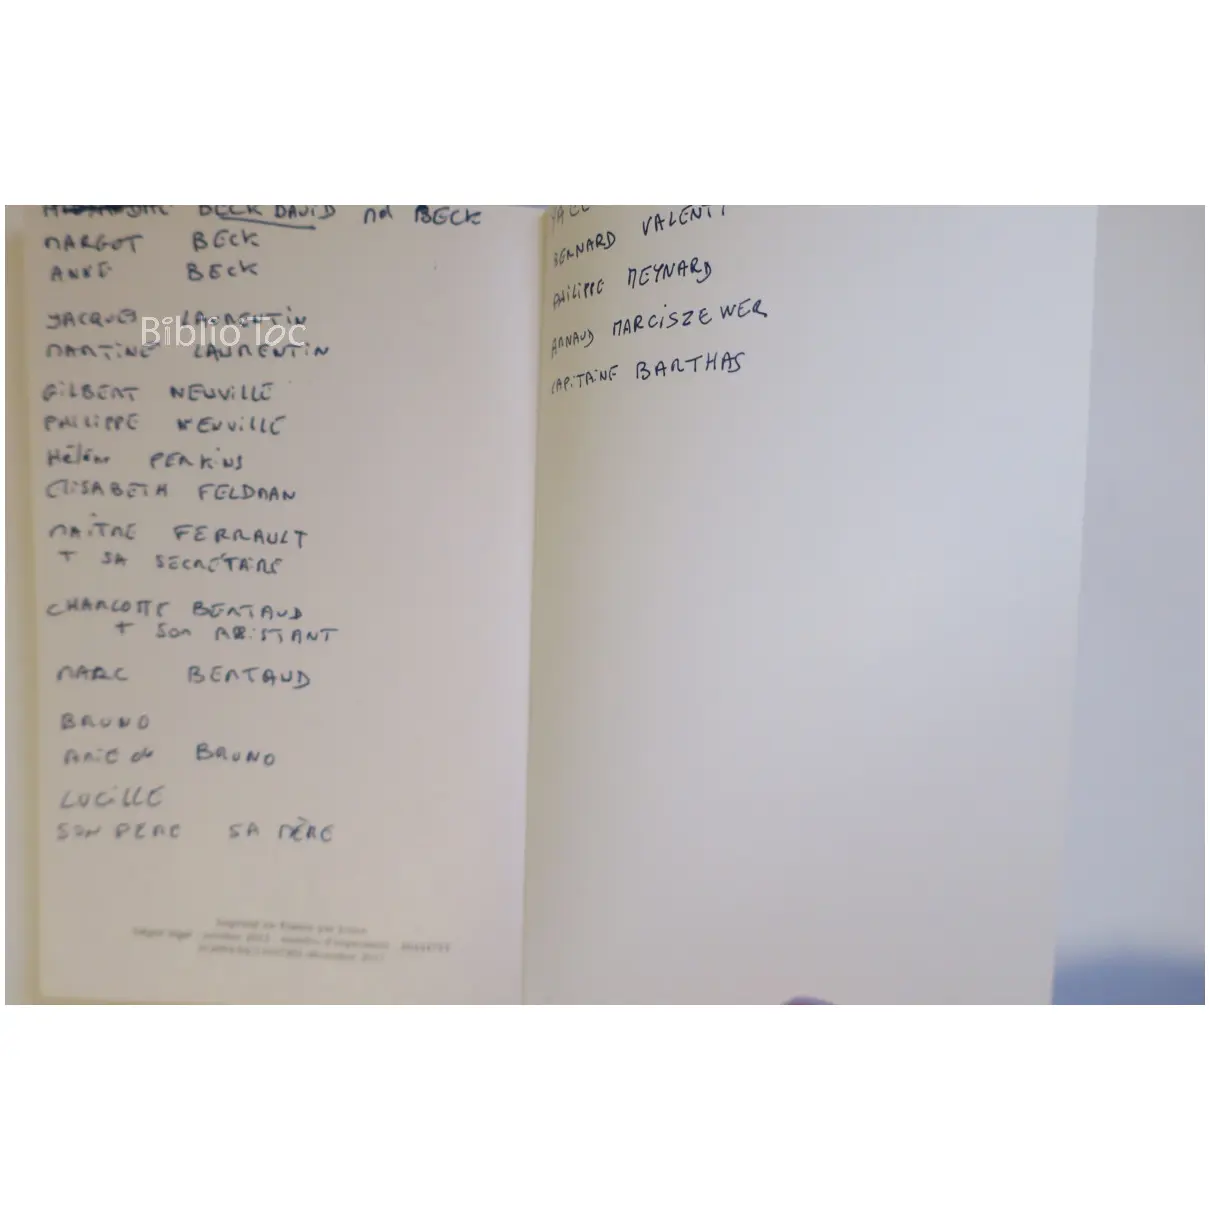 BECK DAVID BECK
MARGOT BECK
ANNE BECK
JACQUES LAURENTIN
Biblio Toc
MARTINE LAURENTIN
GILBERT NEUVILLE
PHILIPPE NEUVILLE
Hélène PERKINS
ELISABETH FELDMAN
MAÎTRE FERRAULT
+ SA SECRÉTAIRE
CHARLOTTE BERTAUD
+ Son ASSISTANT
MARC BERTAUD
BRUNO
AMIE de BRUNO
LUCILLE
SON PERE SA MÈRE
Imprimé en France par
Dépôt légal : octobre 2012 - numéro d'impression :
décembre
BERNARD VALENTI
PHILIPPE MEYNARD
ARNAUD MARCISZEWER
CAPITAINE BARTHAS